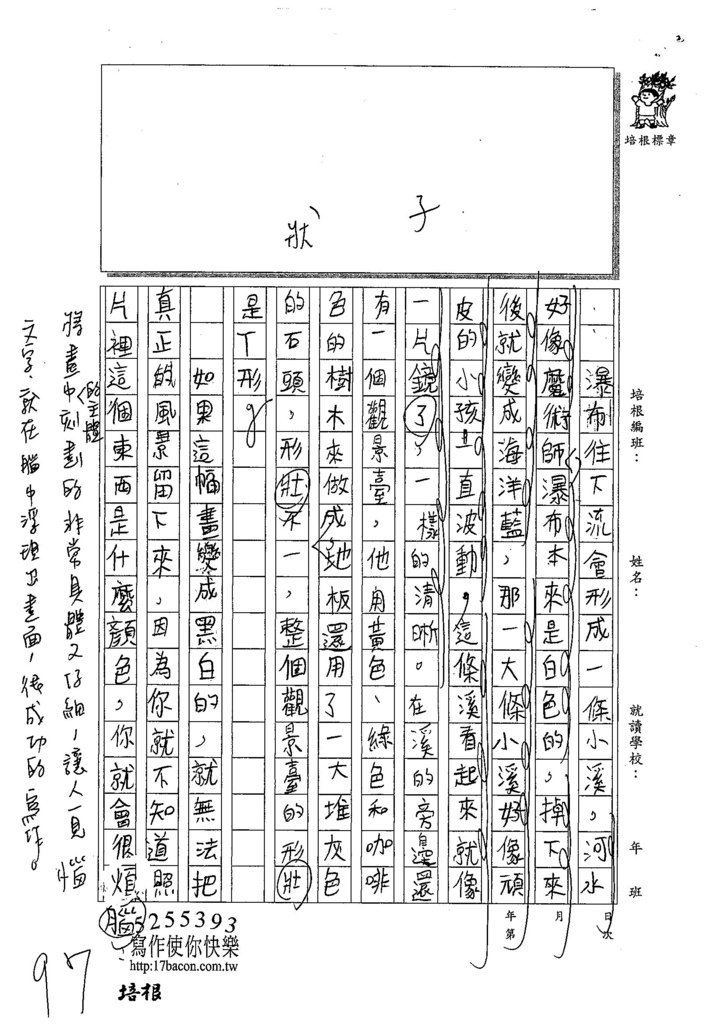 培根標章
子
狀
培根編班：
姓名：
就讀學校：
年 班
年 月 日
第 次
瀑布往下流會形成一條小溪，河水
好像魔術師瀑布本來是白色的，掉下來
後就變成海洋藍，那一大條小溪好像頑
皮的小孩一直波動，這條溪看起來就像
一片鏡了，一樣的清晰。在溪的旁邊還
有一個觀景臺，他用黃色、綠色和咖啡
色的樹木來做成地板還用了一大堆灰色
的石頭，形壯不一，整個觀景臺的形壯
是T形。
如果這幅畫變成黑白的，就無法把
真正的風景留下來，因為你就不知道照
片裡這個東西是什麼顏色，你就會很煩
腦
惱
的主體
將畫中刻劃的非常具體又仔細，讓人一見
文字，就在腦中浮現出畫面，很成功的寫作。
97
5255393
寫作使你快樂
http:17bacon.com.tw
培根